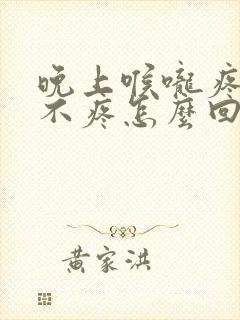 晚上喉嚨疼
不疼怎麼回
黃家洪